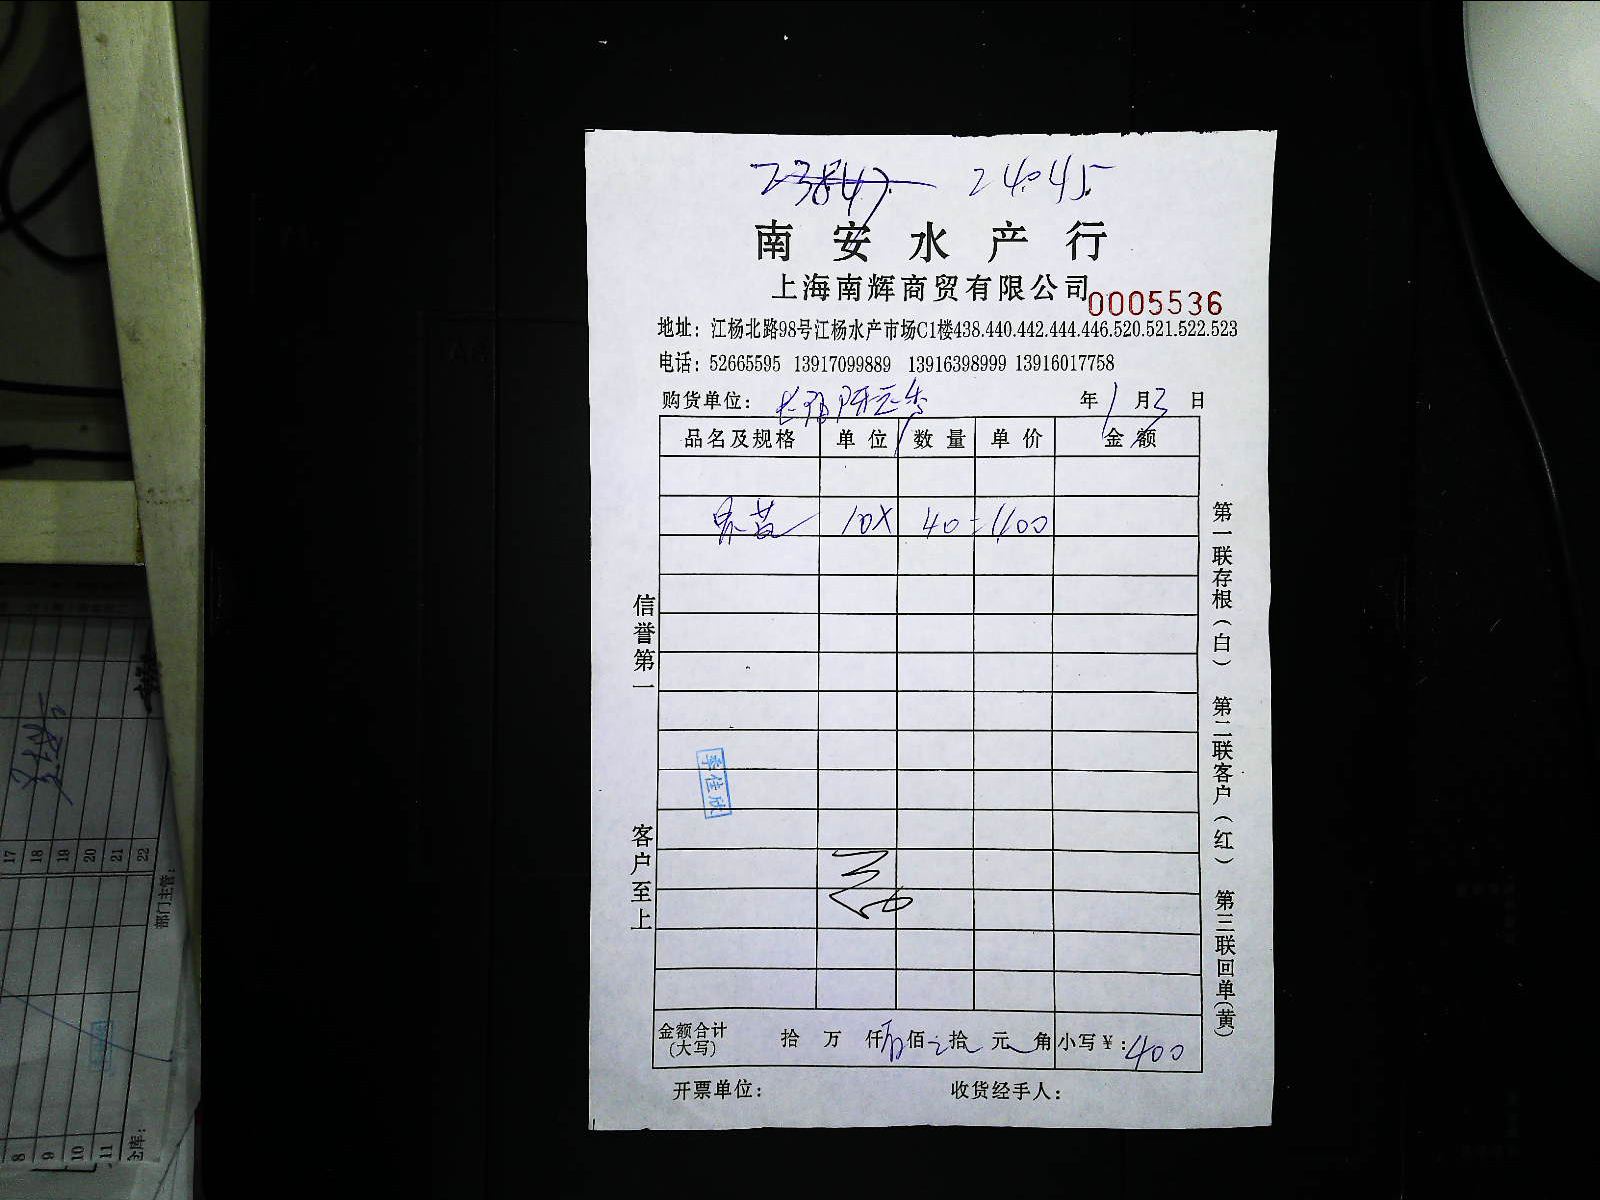 23847. 24045
南安水产行
上海南辉商贸有限公司 0005536
地址：江杨北路98号江杨水产市场C1楼438.440.442.444.446.520.521.522.523
电话：52665595 13917099889 13916398999 13916017758
购货单位： 年 1 月 3 日
品名及规格 单位 数量 单价 金额
10X 40=400
信誉第一
客户至上
季佳欣
第一联存根（白） 第二联客户（红） 第三联回单（黄）
金额合计（大写） 拾 万 仟 佰 拾 元 角 小写￥：400
开票单位： 收货经手人：
17
18
19
20
21
22
部门主管：
8
9
10
11
仓库：